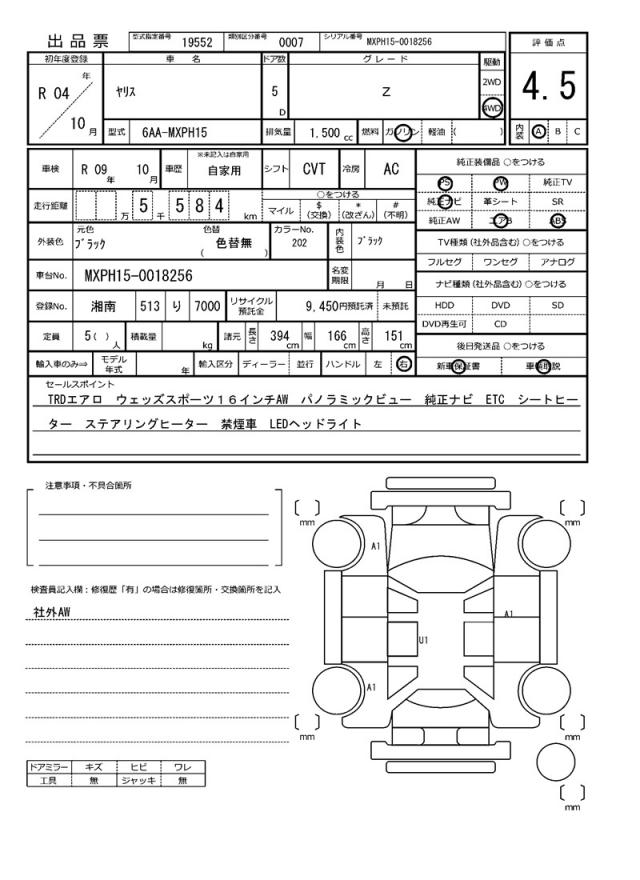 出品票 型式指定番号 19552 類別区分番号 0007 シリアル番号 MXPH15-0018256
評価点
4.5
内装 A B C
初年度登録 車名 ドア数 グレード 駆動
R 04 年 10 月
ヤリス 5 D Z 2WD 4WD
型式 6AA-MXPH15 排気量 1.500 cc 燃料 ガソリン 軽油 ( )
車検 R 09 年 10 月 車歴 ※未記入は自家用 自家用 シフト CVT 冷房 AC
走行距離 万 5 千 5 8 4 km
○をつける
マイル $ (交換) * (改ざん) # (不明)
外装色 元色 ブラック 色替 色替無 ( ) カラーNo. 202 内装色 ブラック
車台No. MXPH15-0018256 名変期限 月 日
登録No. 湘南 513 り 7000 リサイクル預託金 9,450円預託済 未預託
定員 5( )人 積載量 kg 諸元 長さ 394 cm 幅 166 cm 高さ 151 cm
輸入車のみ⇒ モデル年式 年 輸入区分 ディーラー 並行 ハンドル 左 右
純正装備品 ○をつける
PS PW 純正TV
純正ナビ 革シート SR
純正AW エアB ABS
TV種類(社外品含む)○をつける
フルセグ ワンセグ アナログ
ナビ種類(社外品含む)○をつける
HDD DVD SD
DVD再生可 CD
後日発送品 ○をつける
新車保証書 車輌取説
セールスポイント
TRDエアロ ウェッズスポーツ16インチAW パノラミックビュー 純正ナビ ETC シートヒー
ター ステアリングヒーター 禁煙車 LEDヘッドライト
注意事項・不具合箇所
検査員記入欄：修復歴「有」の場合は修復箇所・交換箇所を記入
社外AW
ドアミラー キズ ヒビ ワレ
工具 無 ジャッキ 無
mm
mm
A1
A1
U1
A1
mm
mm
mm